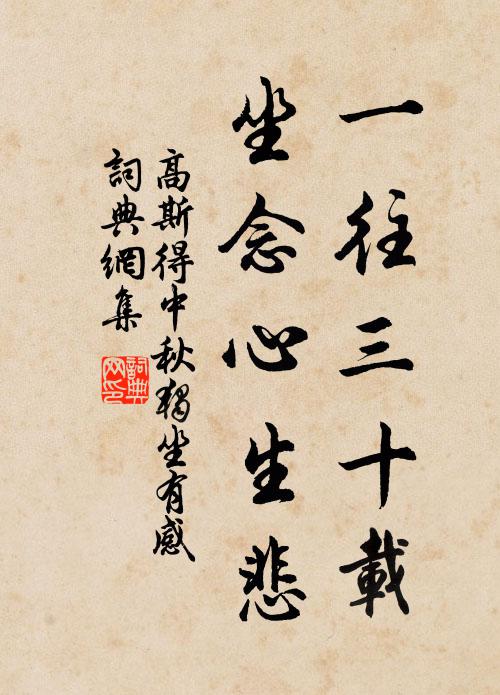 一往三十載
坐念心生悲
高斯得中秋獨坐有感
詞典網集
詞典
网印